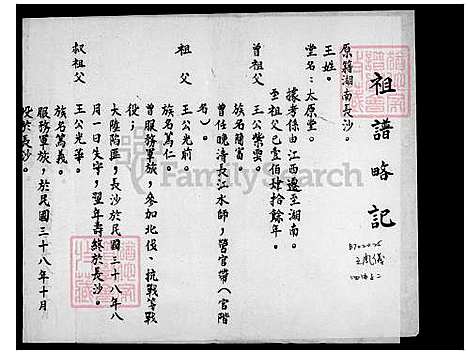 祖譜略記
原籍湖南長沙。
王姓。
堂名：太原堂。
據考係由江西遷至湖南。
至祖父已壹佰肆拾餘年。
曾祖父 王公紫雲。
族名簡富。
曾任晚清長江水師，管官帶（官階名）。
祖父 王公光前。
族名篤仁。
曾服務軍旅，參加北伐、抗戰等戰役；
大陸陷匪，長沙於民國三十八年八
月一日失守，翌年壽終於長沙。
叔祖父 王公光華。
族名篤義。
服務軍旅，於民國三十八年十月
歿於長沙。
FamilySearch